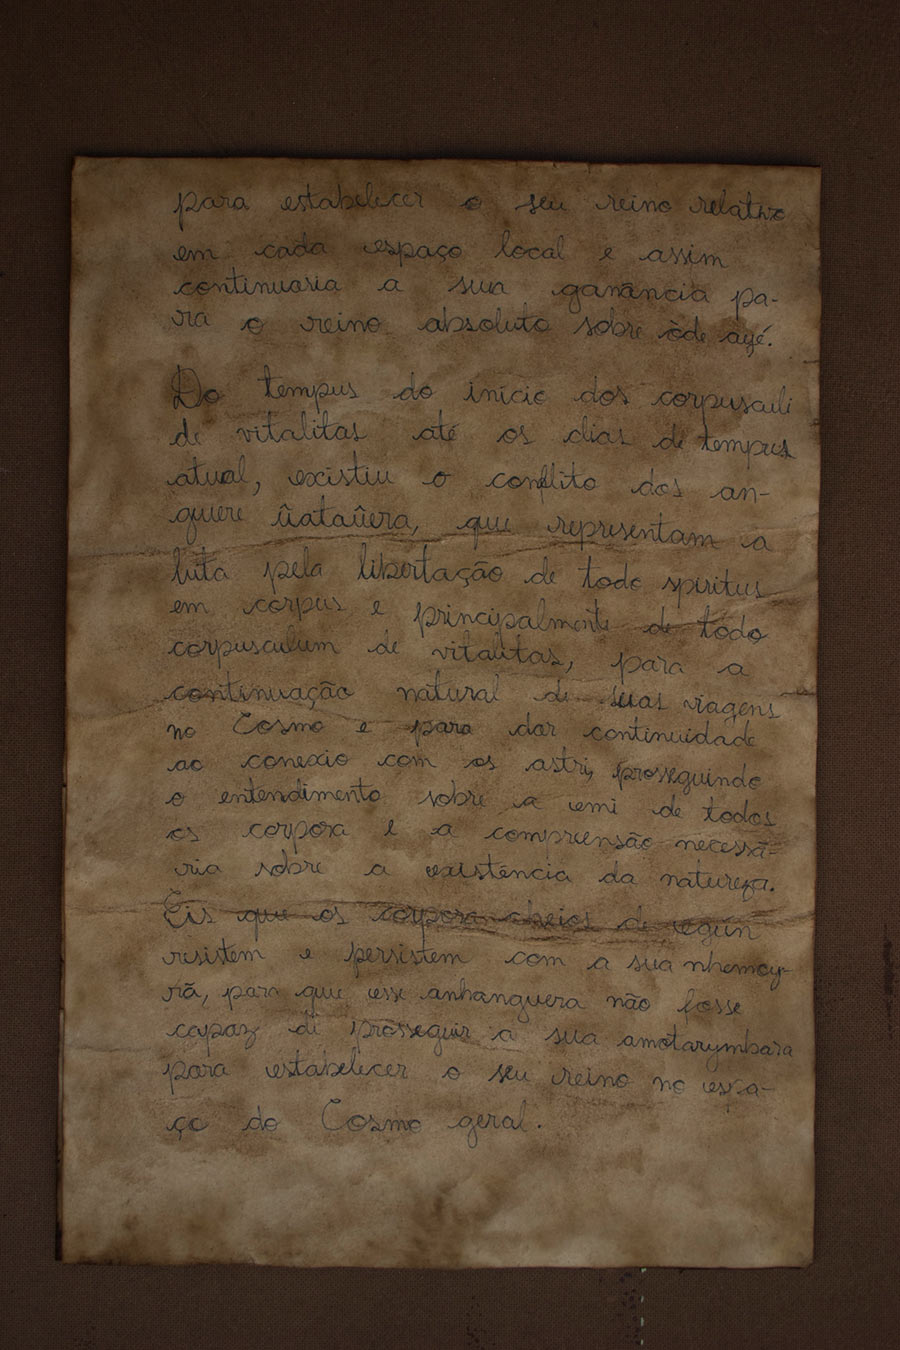 para estabelecer o seu reino relativo
em cada espaço local e assim
continuaria a sua ganância pa-
ra o reino absoluto sobre òde àiyé.
Do tempus do início dos corpusculi
de vitalitas até os dias de tempus
atual, existiu o conflito dos an-
guere ûataûera, que representam a
luta pela libertação de todo spiritus
em corpus e principalmente de todo
corpusculum de vitalitas, para a
continuação natural de suas viagens
no Cosmo e para dar continuidade
ao conexio com os astri, prosseguindo
o entendimento sobre a emi de todos
os corpora e a compreensão necessá-
ria sobre a existência da natureza.
Eis que os corpora cheios de egún
resistem e persistem com a sua nhemoy-
rõ, para que esse anhanguera não fosse
capaz de prosseguir a sua amotarymbara
para estabelecer o seu reino no espa-
ço do Cosmo geral.